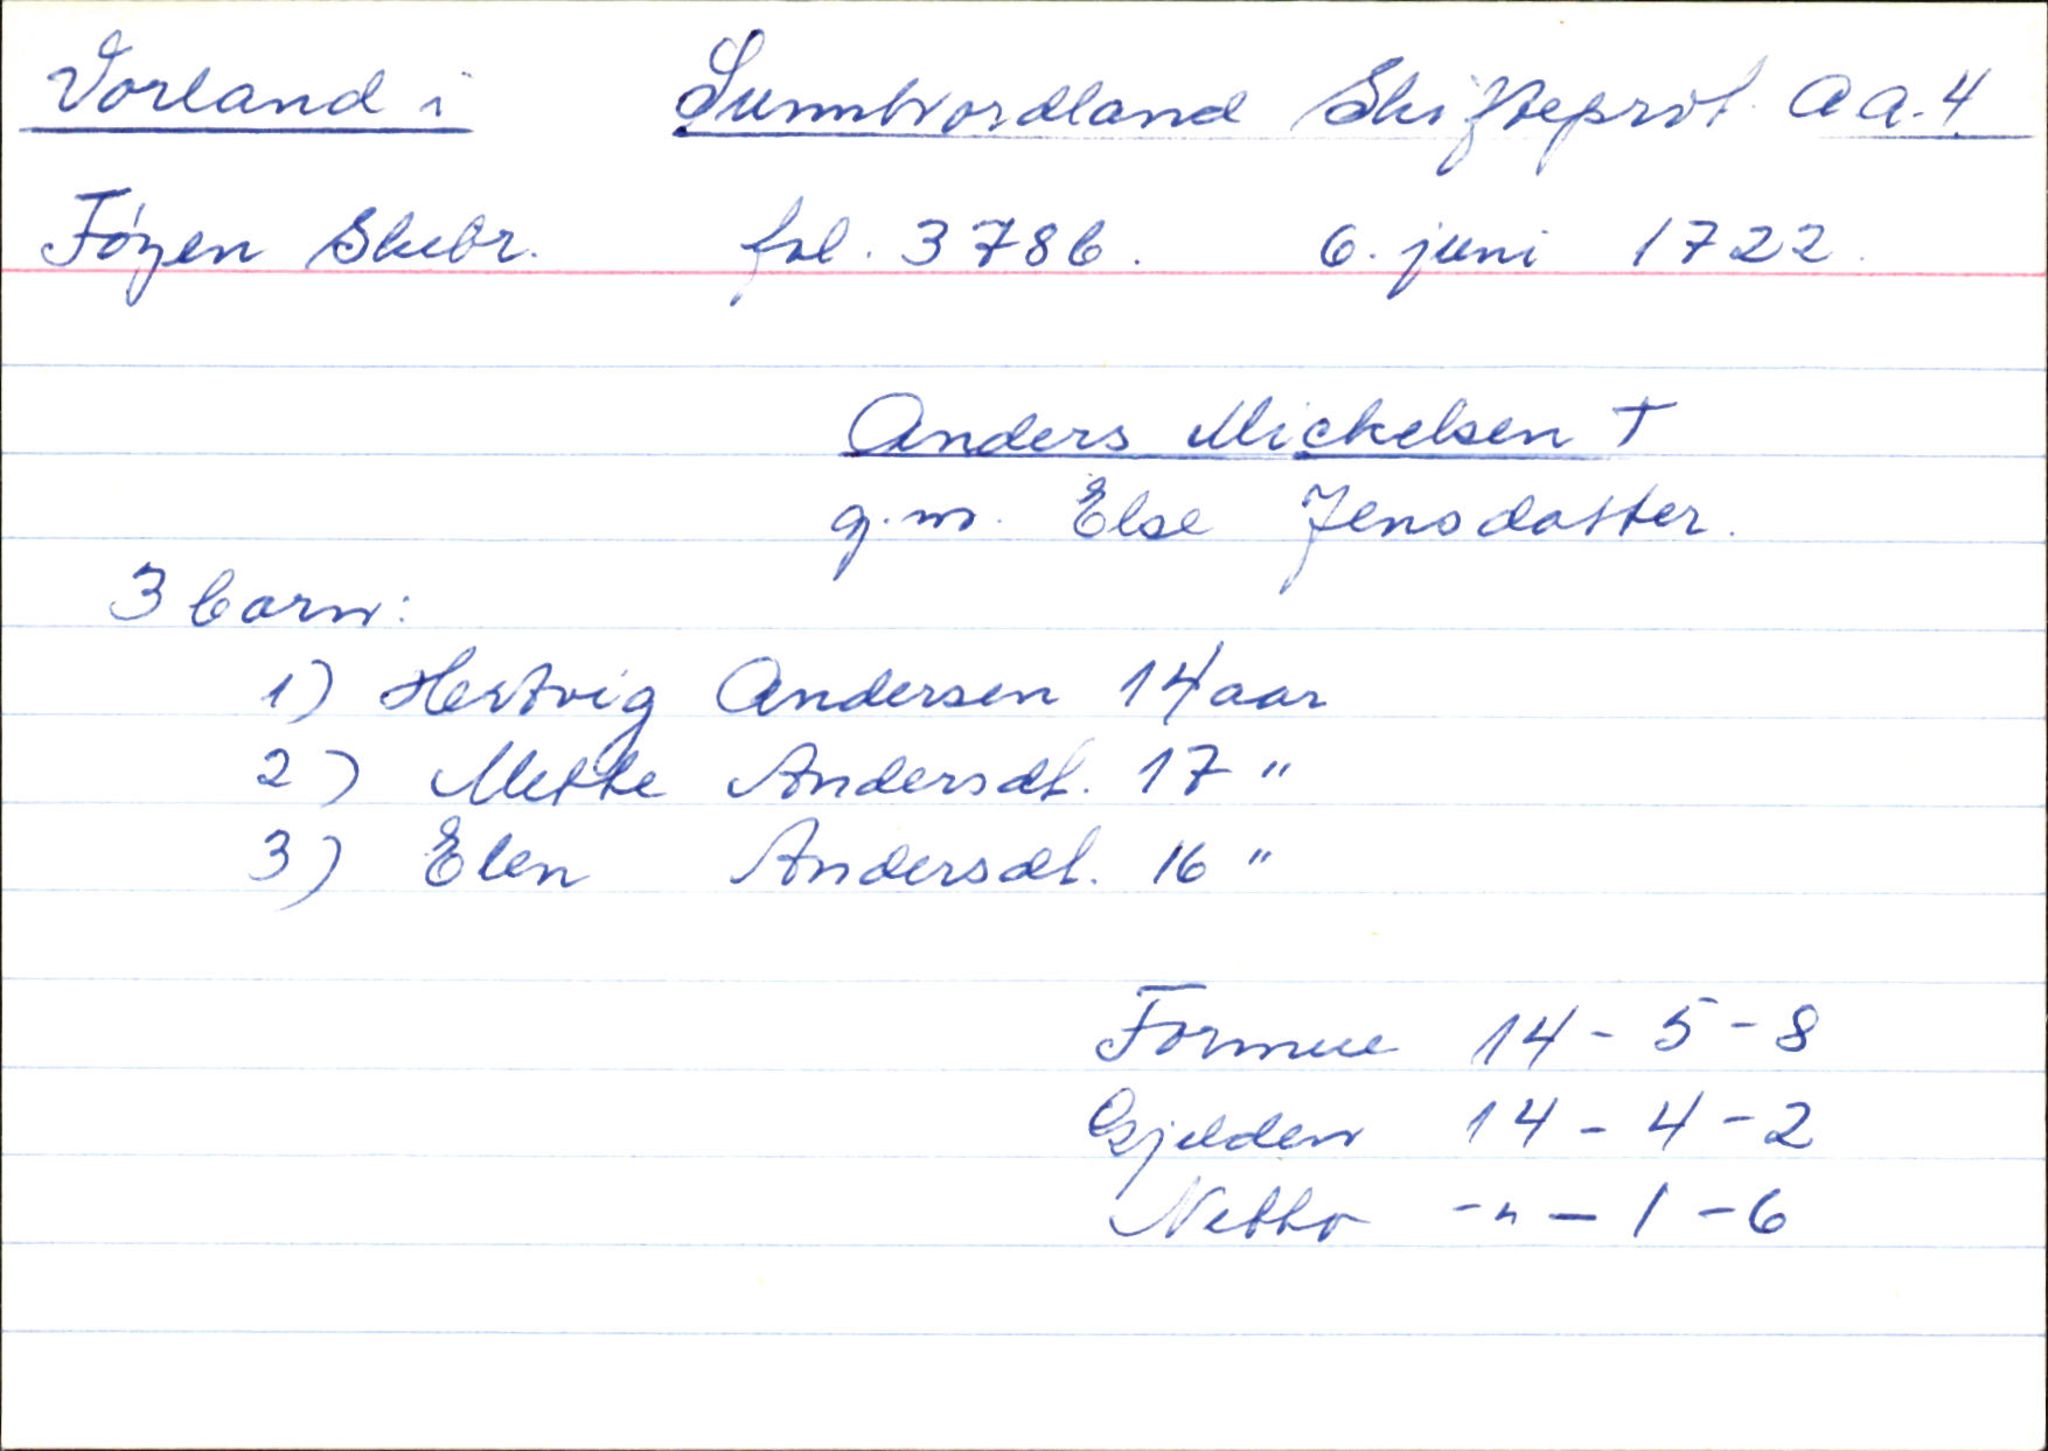 Vorland i Sunnhordland Skifteprot. A a. 4
Föyen Skibr. fol. 378b. 6. juni 1722.
Anders Mickelsen †
g.m. Else Jensdatter.
3 barn:
1) Hertvig Andersen 14 aar
2) Mette Andersdt. 17 "
3) Elen Andersdt. 16 "
Formue 14 - 5 - 8
Gjelden 14 - 4 - 2
Netto - " - 1 - 6